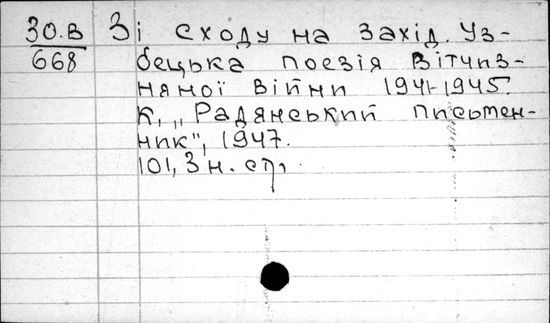 30.В Зі сходу на захід. Уз-
668 бецька поезія Вітчиз-
няної війни 1941-1945.
К, „Радянський письмен-
ник", 1947.
101, 3 н. ст,